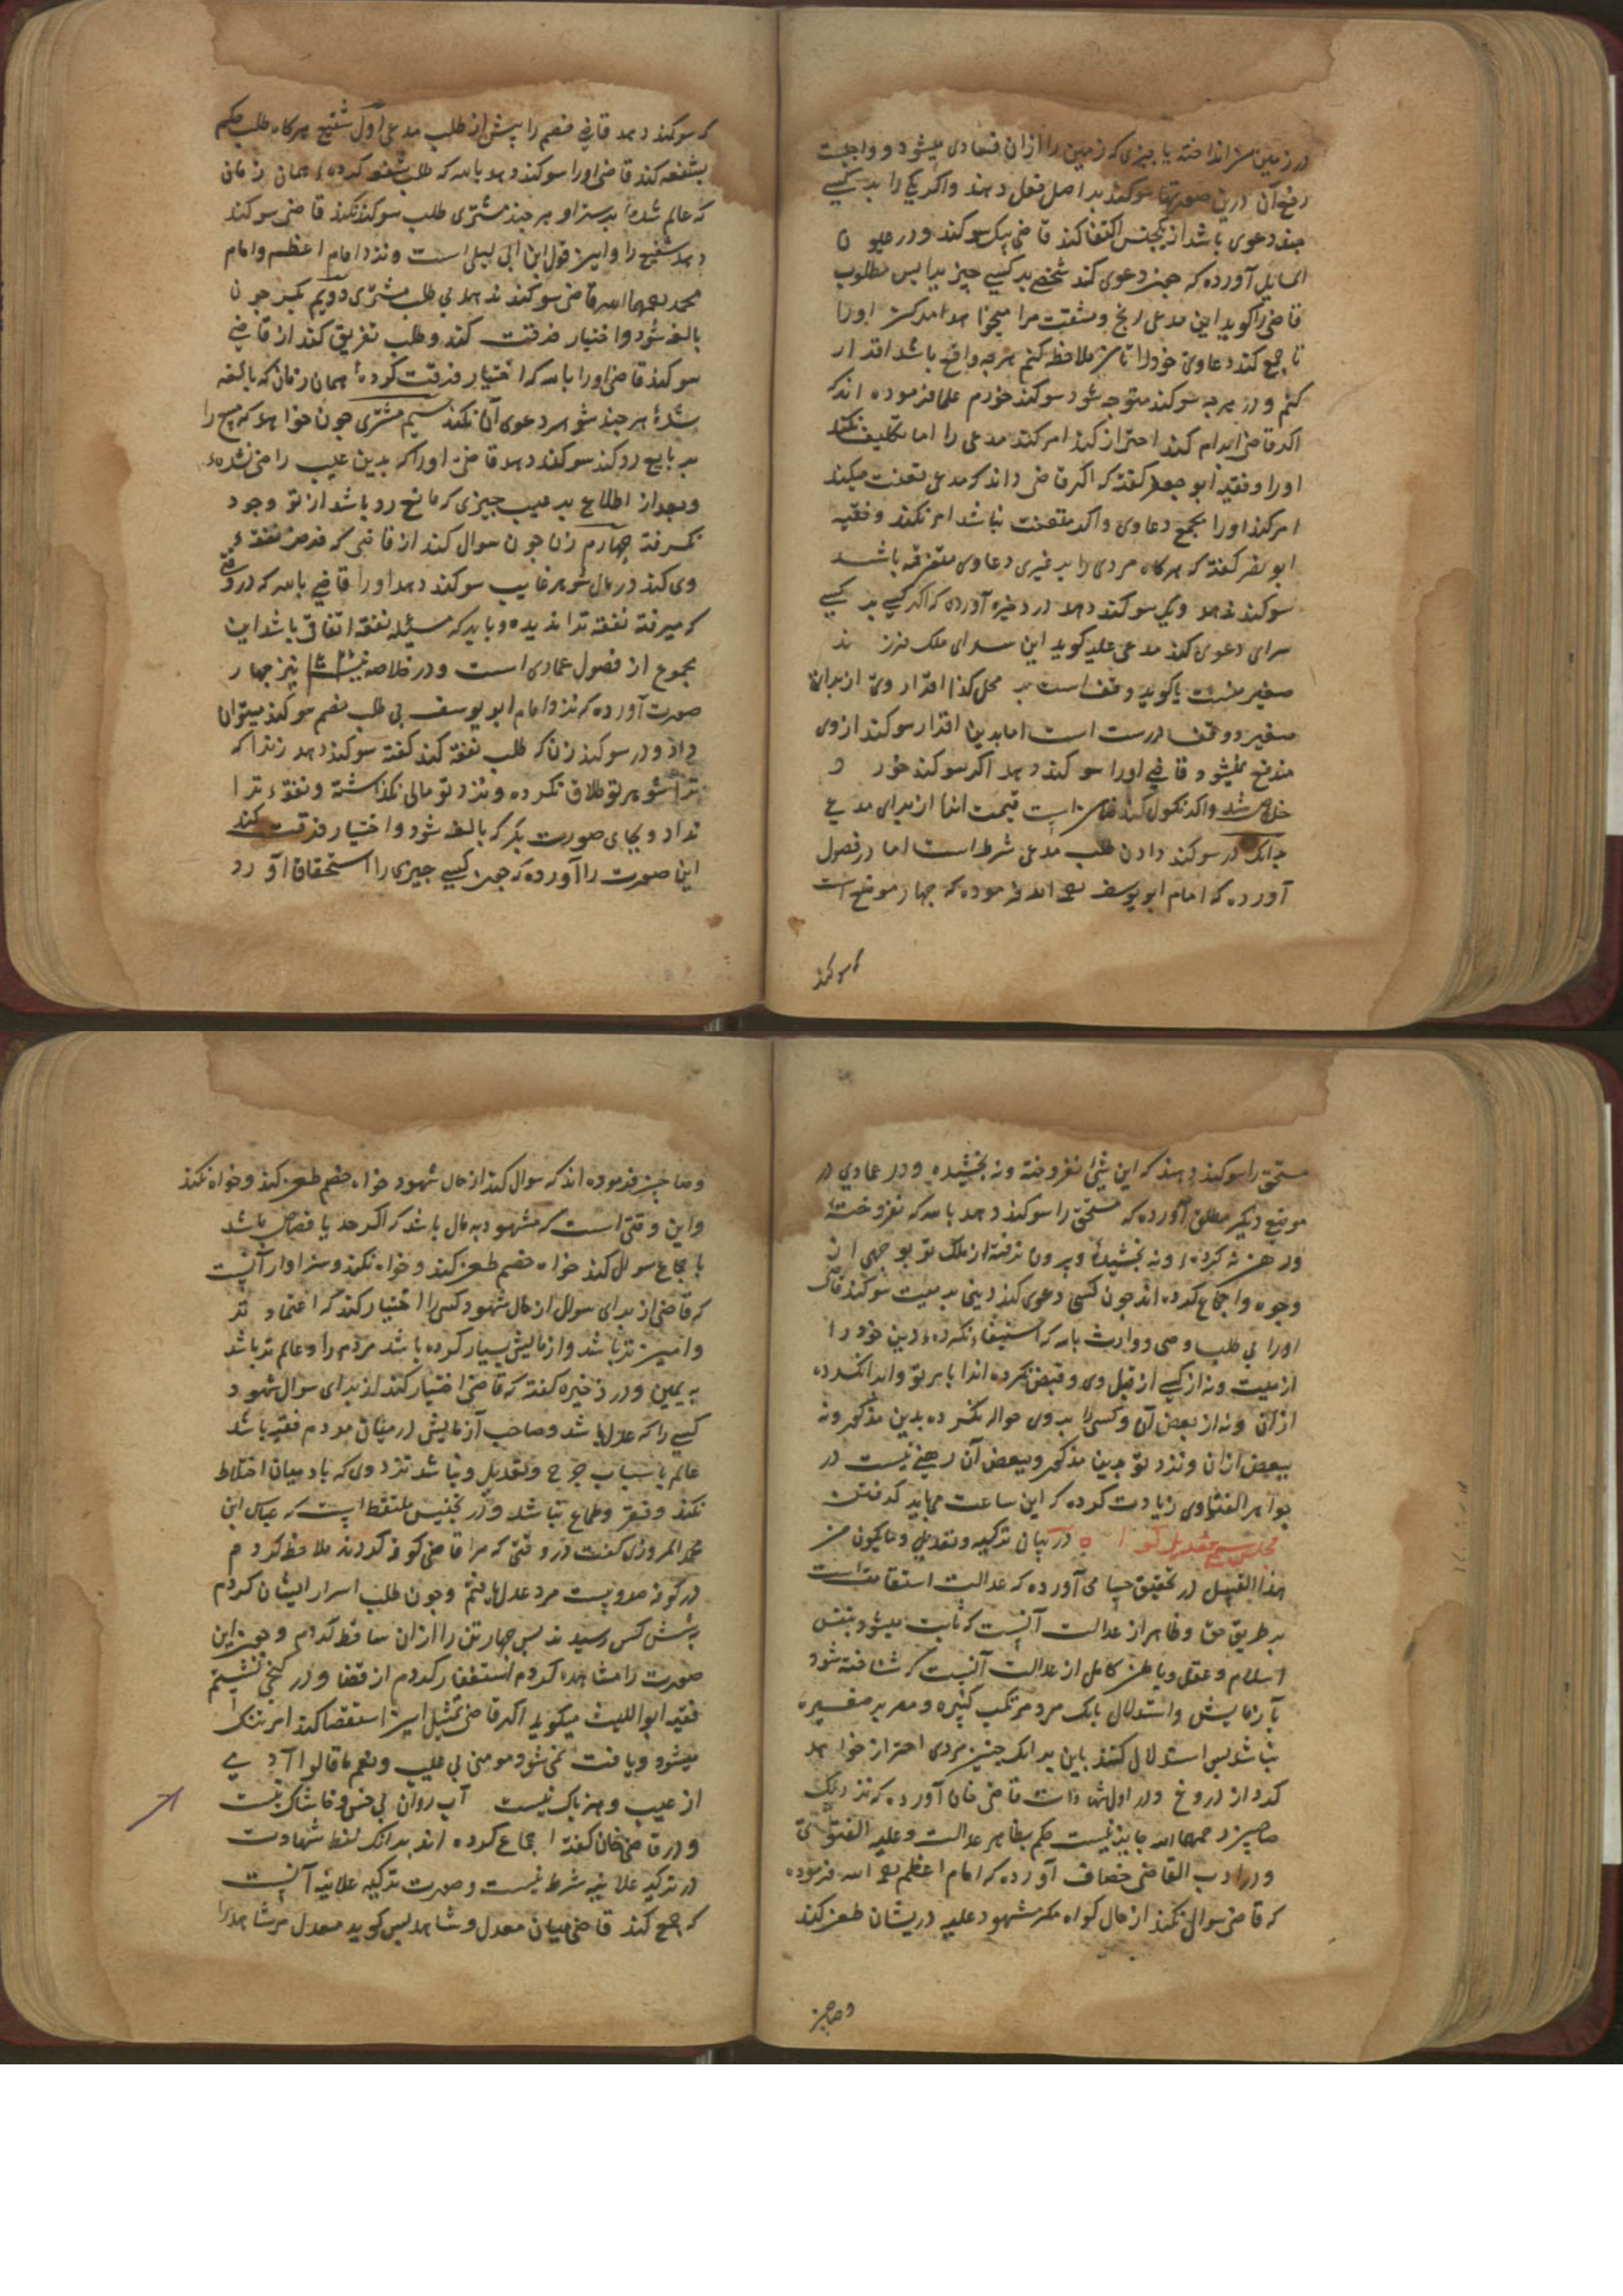 در زمین من انداخته یا چیزی که زمین را از آن فسادی میشود و واجبست
رفع آن درین صورتها سوکند بر اصل فعل دهند واکر یکی را بر کسی
چند دعوی باشد از یکجنس اکتفا کند قاضی بیک سوکند و در عیون
المسایل آورده که چون دعوی کند شخصی بر کسی چیز برا پس مطلوب
قاضی را کوید این مدعی رنج و مشقت مرا میخواهد امر کن اورا
تا جمع کند دعاوی خود را تا من ملاحظه کنم هرچه واقع باشد اقرار
کنم و در هرچه سوکند متوجه شود سوکند خورم علما فرموده اند که
اکر قاضی ابرام کند احتراز کند امر کند مدعی را اما تکلیف نکند
اورا و فقیه ابو جعفر کفته که اکر قاضی داند که مدعی تعنت میکند
امر کند اورا بجمع دعاوی واکر متعنت نباشد امر نکند و فقیه
ابو نصر کفته که هرکاه مردی را بر غیری دعاوی متفرقه باشد
سوکند ندهد و یک سوکند دهد در ذخیره آورده که اکر کسی بر کسی
سرای دعوی کند مدعی علیه کوید این سرای ملک فرزند
صغیر منست یا کوید وقف است بر محل کذا اقرار وی از برای
صغیر و وقف درست است اما بدین اقرار سوکند از وی
مندفع نمیشود قاضی اورا سوکند دهد اکر سوکند خورد
خلاص شد واکر نکول کند ضامن است قیمت آنرا از برای مدعی
بدانک در سوکند دادن طلب مدعی شرط است اما در فصول
آورده که امام ابو یوسف رحمه الله فرموده که چهار موضع است
که سوکند
که سوکند دهد قاضی خصم را پیش از طلب مدعی اول شفیع هرکاه طلب حکم
بشفعه کند قاضی اورا سوکند دهد بالله که طلب شفعه کردهٔ همان زمان
که عالم شدهٔ بدستراو هرچند مشتری طلب سوکند نکند قاضی سوکند
دهد شفیع را واین قول ابن ابی لیلی است و نزد امام اعظم وامام
محمد رحمهما الله قاضی سوکند ندهد بی طلب مشتری دویم بکر چون
بالغه شود واختیار فرقت کند و طلب تفریق کند از قاضی
سوکند قاضی اورا بالله که اختیار فرقت کردهٔ همان زمان که بالغه
شدهٔ هرچند شوهر دعوی آن نکند سیم مشتری چون خواهد که مبیع را
بر بایع رد کند سوکند دهد قاضی اورا که بدین عیب راضی نشدهٔ
وبعد از اطلاع بر عیب چیزی که مانع رد باشد از تو وجود
نکرفته چهارم زن چون سوال کند از قاضی که فرض نفقهٔ
وی کند در مال شوهر غایب سوکند دهد اورا قاضی بالله که در وقتی
که میرفته نفقه ترا نه داده و باید که مسئله نفقه اتفاقی باشد این
مجموع از فصول عمادی است و در خلاصه نیز چهار
صورت آورده که نزد امام ابو یوسف بی طلب خصم سوکند میتوان
داد و در سوکند زن که طلب نفقه کند کفته سوکند دهد زنرا که
ترا شوهر تو طلاق نکرده و نزد تو مالی نکذاشته و نفقهٔ ترا
نداد و بجای صورت بکر که بالغه شود واختیار فرقت کند
این صورت را آورده که چون کسی چیزی را استحقاق آورد
مستحق را سوکند دهند که این شئ نفروخته و نه بخشیده و در عمادی در
موضع دیکر مطلق آورده که مستحق را سوکند دهد بالله که نفروختهٔ
و رهن نه کردهٔ و نه بخشیدهٔ و بیرون نرفته از ملک تو بوجهی از
وجوه واجماع کرده اند چون کسی دعوی کند دینی بر میت سوکند قاضی
اورا بی طلب وصی و وارث بالله که استیفاء نکردهٔ دین خود را
از میت و نه از کسی از قبل وی و قبض نکرده اند بامر تو وابرا نکرده
از آن و نه از بعض آن و کسی را بر وی حواله نکرده بدین مذکور و نه
ببعض ازان و نزد تو بدین مذکور و ببعض آن رهنی نیست در
جواهر الفتاوی زیادت کرده که این ساعت می باید کرفتن
در بیان تزکیه و تعدیل و ما یکون من
هذا القبیل در تحقیق حسامی آورده که عدالت استقامت است
بر طریق حق و ظاهر از عدالت آنست که ثابت میشود بنفس
اسلام و عقل و باطن کامل از عدالت آنست که شناخته شود
بآزمایش واستدلال بانک مرد مرتکب کبیره و مصر بر صغیره
نباشد پس استدلال کنند باین بر انک چنین مردی احتراز خواهد
کرد از دروغ و در اول شهادات قاضی خان آورده که نزدیک
صاحبین رحمهما الله جایز نیست حکم بظاهر عدالت و علیه الفتوی
و در ادب القاضی خصاف آورده که امام اعظم رحمه الله فرموده
که قاضی سوال نکند از حال کواه مکر مشهود علیه دریشان طعن کند
وصاحبین
وصاحبین فرموده اند که سوال کند از حال شهود خواه خصم طعن کند و خواه نکند
واین وقتی است که مشهود به مال باشد که اکر حد یا قصاص باشد
باجماع سوال کند خواه خصم طعن کند و خواه نکند و سزاوار آنست
که قاضی از برای سوال از حال شهود کسی را اختیار کند که اعتماد تر
وامین تر باشد وازمایش بسیار کرده باشد مردم را وعالم تر باشد
به یمین و در ذخیره کفته که قاضی اختیار کند از برای سوال شهود
کسی را که عدل باشد وصاحب آزمایش در میان مردم فقیه باشد
عالم باسباب جرح و تعدیل و نباشد نزد وی که بادمیان اختلاط
نکند و فقیر و طماع نباشد و در تجنیس ملتقط است که عباس ابن
محمد المروزی کفت در وقتی که مرا قاضی کوفه کردند ملاحظه کردم
در کوفه صد و بیست مرد عدل یافتم و چون طلب اسرار ایشان کردم
بشش کس رسید پس چهار تن را ازان ساقط کردم و چون این
صورت را مشاهده کردم استغفار کردم از قضا و در کنجی نشستم
فقیه ابو اللیث میکوید اکر قاضی بمثل این استقصا کند امر تنک
میشود و یافت نمی شود مومن بی عیب و نعم ما قالوا آدمی
از عیب و هنر پاک نیست آب روان بی خس و خاشاک نیست
و در قاضی خان کفته اجماع کرده اند بدانک لفظ شهادت
در تزکیه علانیه شرط نیست وصورت تزکیه علانیه آنست
که جمع کند قاضی میان معدل و شاهد پس کوید معدل مر شاهد را